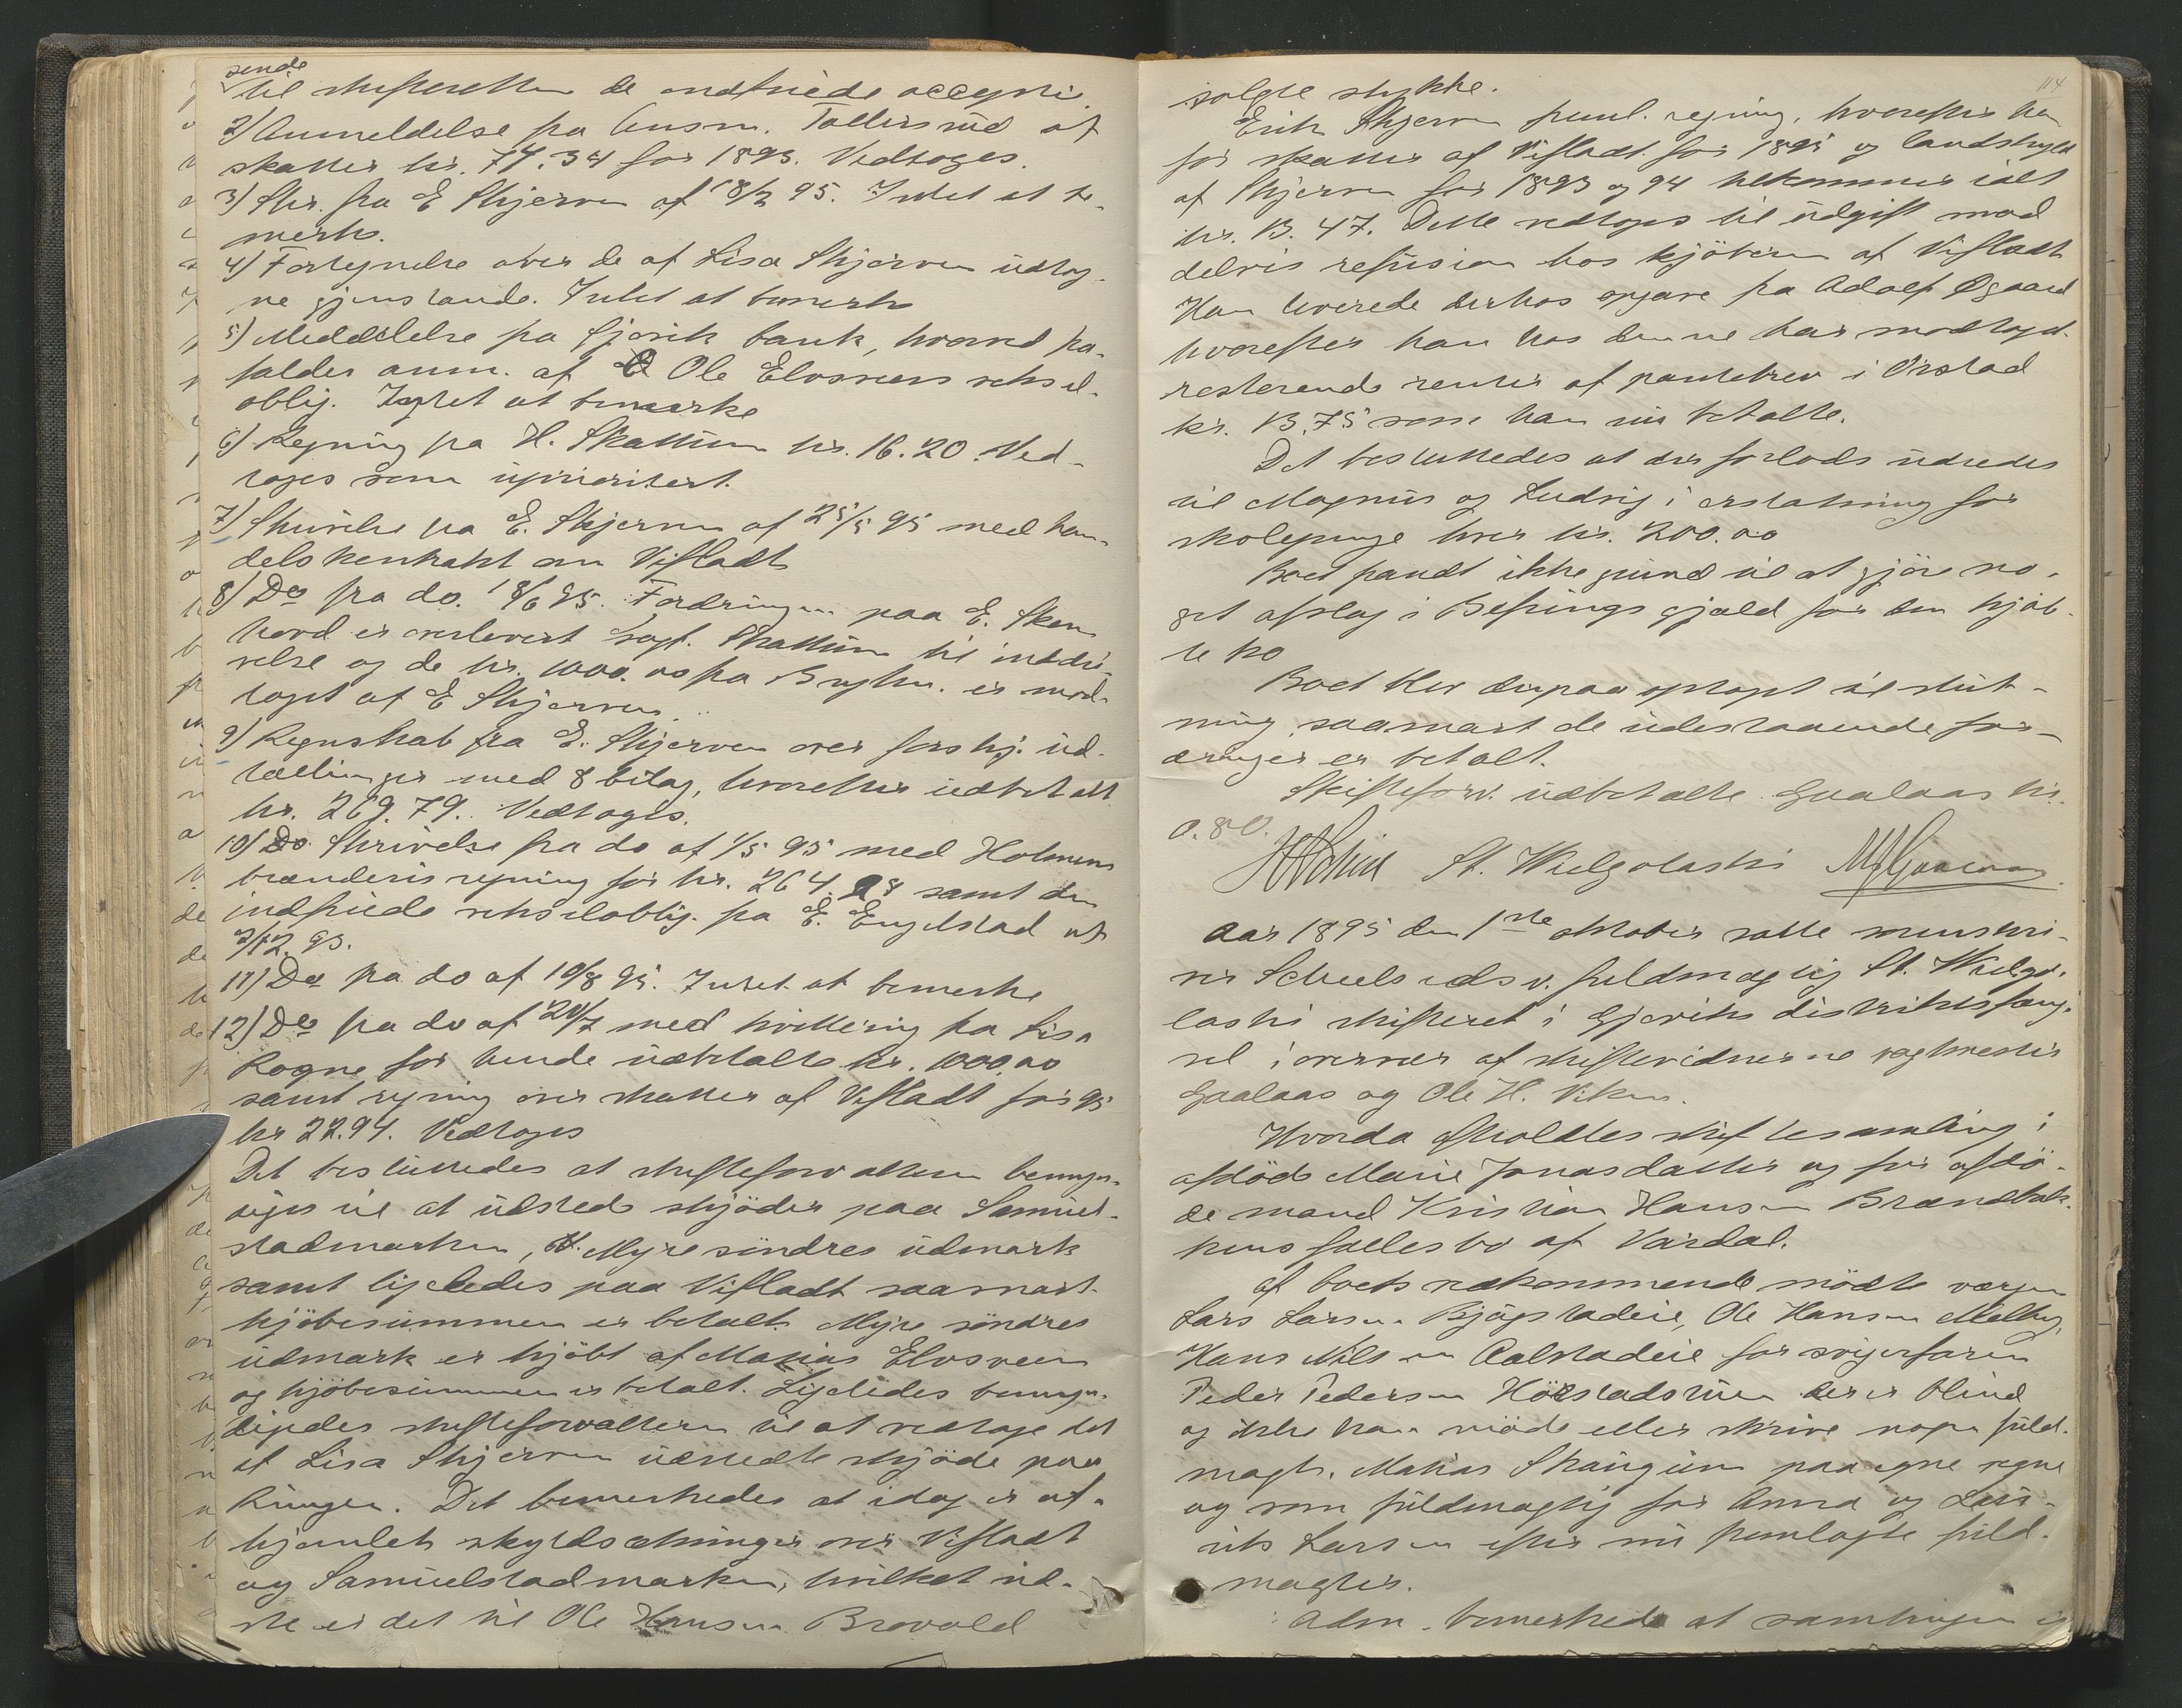 sende
til skifteretten de indfriede accepter.
2) Anmeldelse fra Lensm. Tollersrud af
skatter kr. 74.34 for 1893. Vedtoges.
3) Skr. fra E Skjerven af 18/2 95. Intet at be-
merke.
4) Fortegnelse over de af Lisa Skjerven udtag-
ne gjenstande. Intet at bemerke
5) Meddelelse fra Gjøvik bank, hvorved fra-
falder anm. af Ole Elvsveens veksel-
oblig. Intet at bemærke
6) Regning fra H. Skattum kr. 16.20. Ved-
toges som uprioritert.
7) Skrivelse fra E. Skjerven af 25/5 95 med han-
delskontrakt om Vifladt
8) Do fra do. 18/6 95. Fordringen paa E. Sken
herd er overlevert sagf. Skattum til inddri-
velse og de kr. 1000.00 fra Bryhn. er mod-
taget af E Skjerven.
9) Regnskab fra E. Skjerven over forskj. ud-
tællinger med 8 bilag, hvorefter udbetalt
kr. 269.79. Vedtoges.
10) Skrivelse fra do af 1/5 95 med Holmens
brænderis regning for kr. 264. 28 samt den
indfriede vekseloblig. fra E. Engelstad af
2/12 93.
11) Do fra do af 10/8 95. Intet at bemerke
12) Do fra do af 20/7 med kvittering fra Lisa
Rogne for hende udbetalte kr. 1000.00
samt regning over skatter af Vifladt for 95
kr 22.94. Vedtoges
Det besluttedes at skifteforvalteren bemyn-
diges til at udstede skjøder paa Samuel-
stadmarken, Myre søndres udmark
samt ligeledes paa Vifladt saasnart
kjøbesummen er betalt. Myre søndres
udmark er kjøbt af Matias Elvsveen
og kjøbesummen er betalt. Ligeledes bemyn-
digedes skifteforvalteren til at vedtage det
af Lisa Skjerven udstedte skjøde paa
Ringen. Det bemerkedes at idag er af-
hjemlet skyldsætninger over Vifladt
og Samuelstadmarken, hvilket sid-
ste er det til Ole Hansen Brovold
114
solgte stykke.
Erik Skjerven freml. regning, hvorefter han
for skatter af Vifladt for 1895 og landskyld
af Skjerven for 1893 og 94 tilkommer ialt
kr. 13.47. Dette vedtoges til udgift mod
delvis refusion hos kjøberen af Vifladt
Han leverede derhos opgave fra Adolf Øgaard
hvorefter han hos denne har modtaget
resterende renter af pantebrev i Ørstad
kr. 13.75 som han nu betalte.
Det besluttedes at der forlods udredes
til Magnus og Ludvig i erstatning for
skolepenge hver kr. 200.00
Boet fandt ikke grund til at gjøre no-
get afslag i Besfrings gjæld for den kjøb-
te ko
Boet blev derpaa optaget til slut-
ning saasnart de udestaaende for-
dringer er betalt.
Skifteforv. udbetalte Gaalaas kr.
0.80.
St. Wielgolaski M Gaalaas
Aar 1895 den 1ste oktober satte sorenskri-
ver Scheels edsv. fuldmægtig St. Wielgo-
laski skifteret i Gjøviks distriktsfæng-
sel i overvær af skiftevidnerne vagtmester
Gaalaas og Ole H. Viken.
Hvorda afholdtes skiftesamling i
afdøde Marie Jonasdatter og før afdø-
de mand Kristian Hansen Brændbak-
kens fællesbo af Vardal.
Af boets vedkommende mødte værgen
Lars Larsen Bjøgstadeie, Ole Hansen Melby,
Hans Nilsen Aalstadeie for svigerfaren
Peder Pedersen Hørstadstuen der er blind
og ikke kan møde eller skrive nogen fuld-
magt. Matias Skaugum paa egne vegne
og som fuldmægtig for Anna og Lau-
rits Larsen efter nu fremlagte fuld-
magter.
Adm. bemerkede at samlingen er